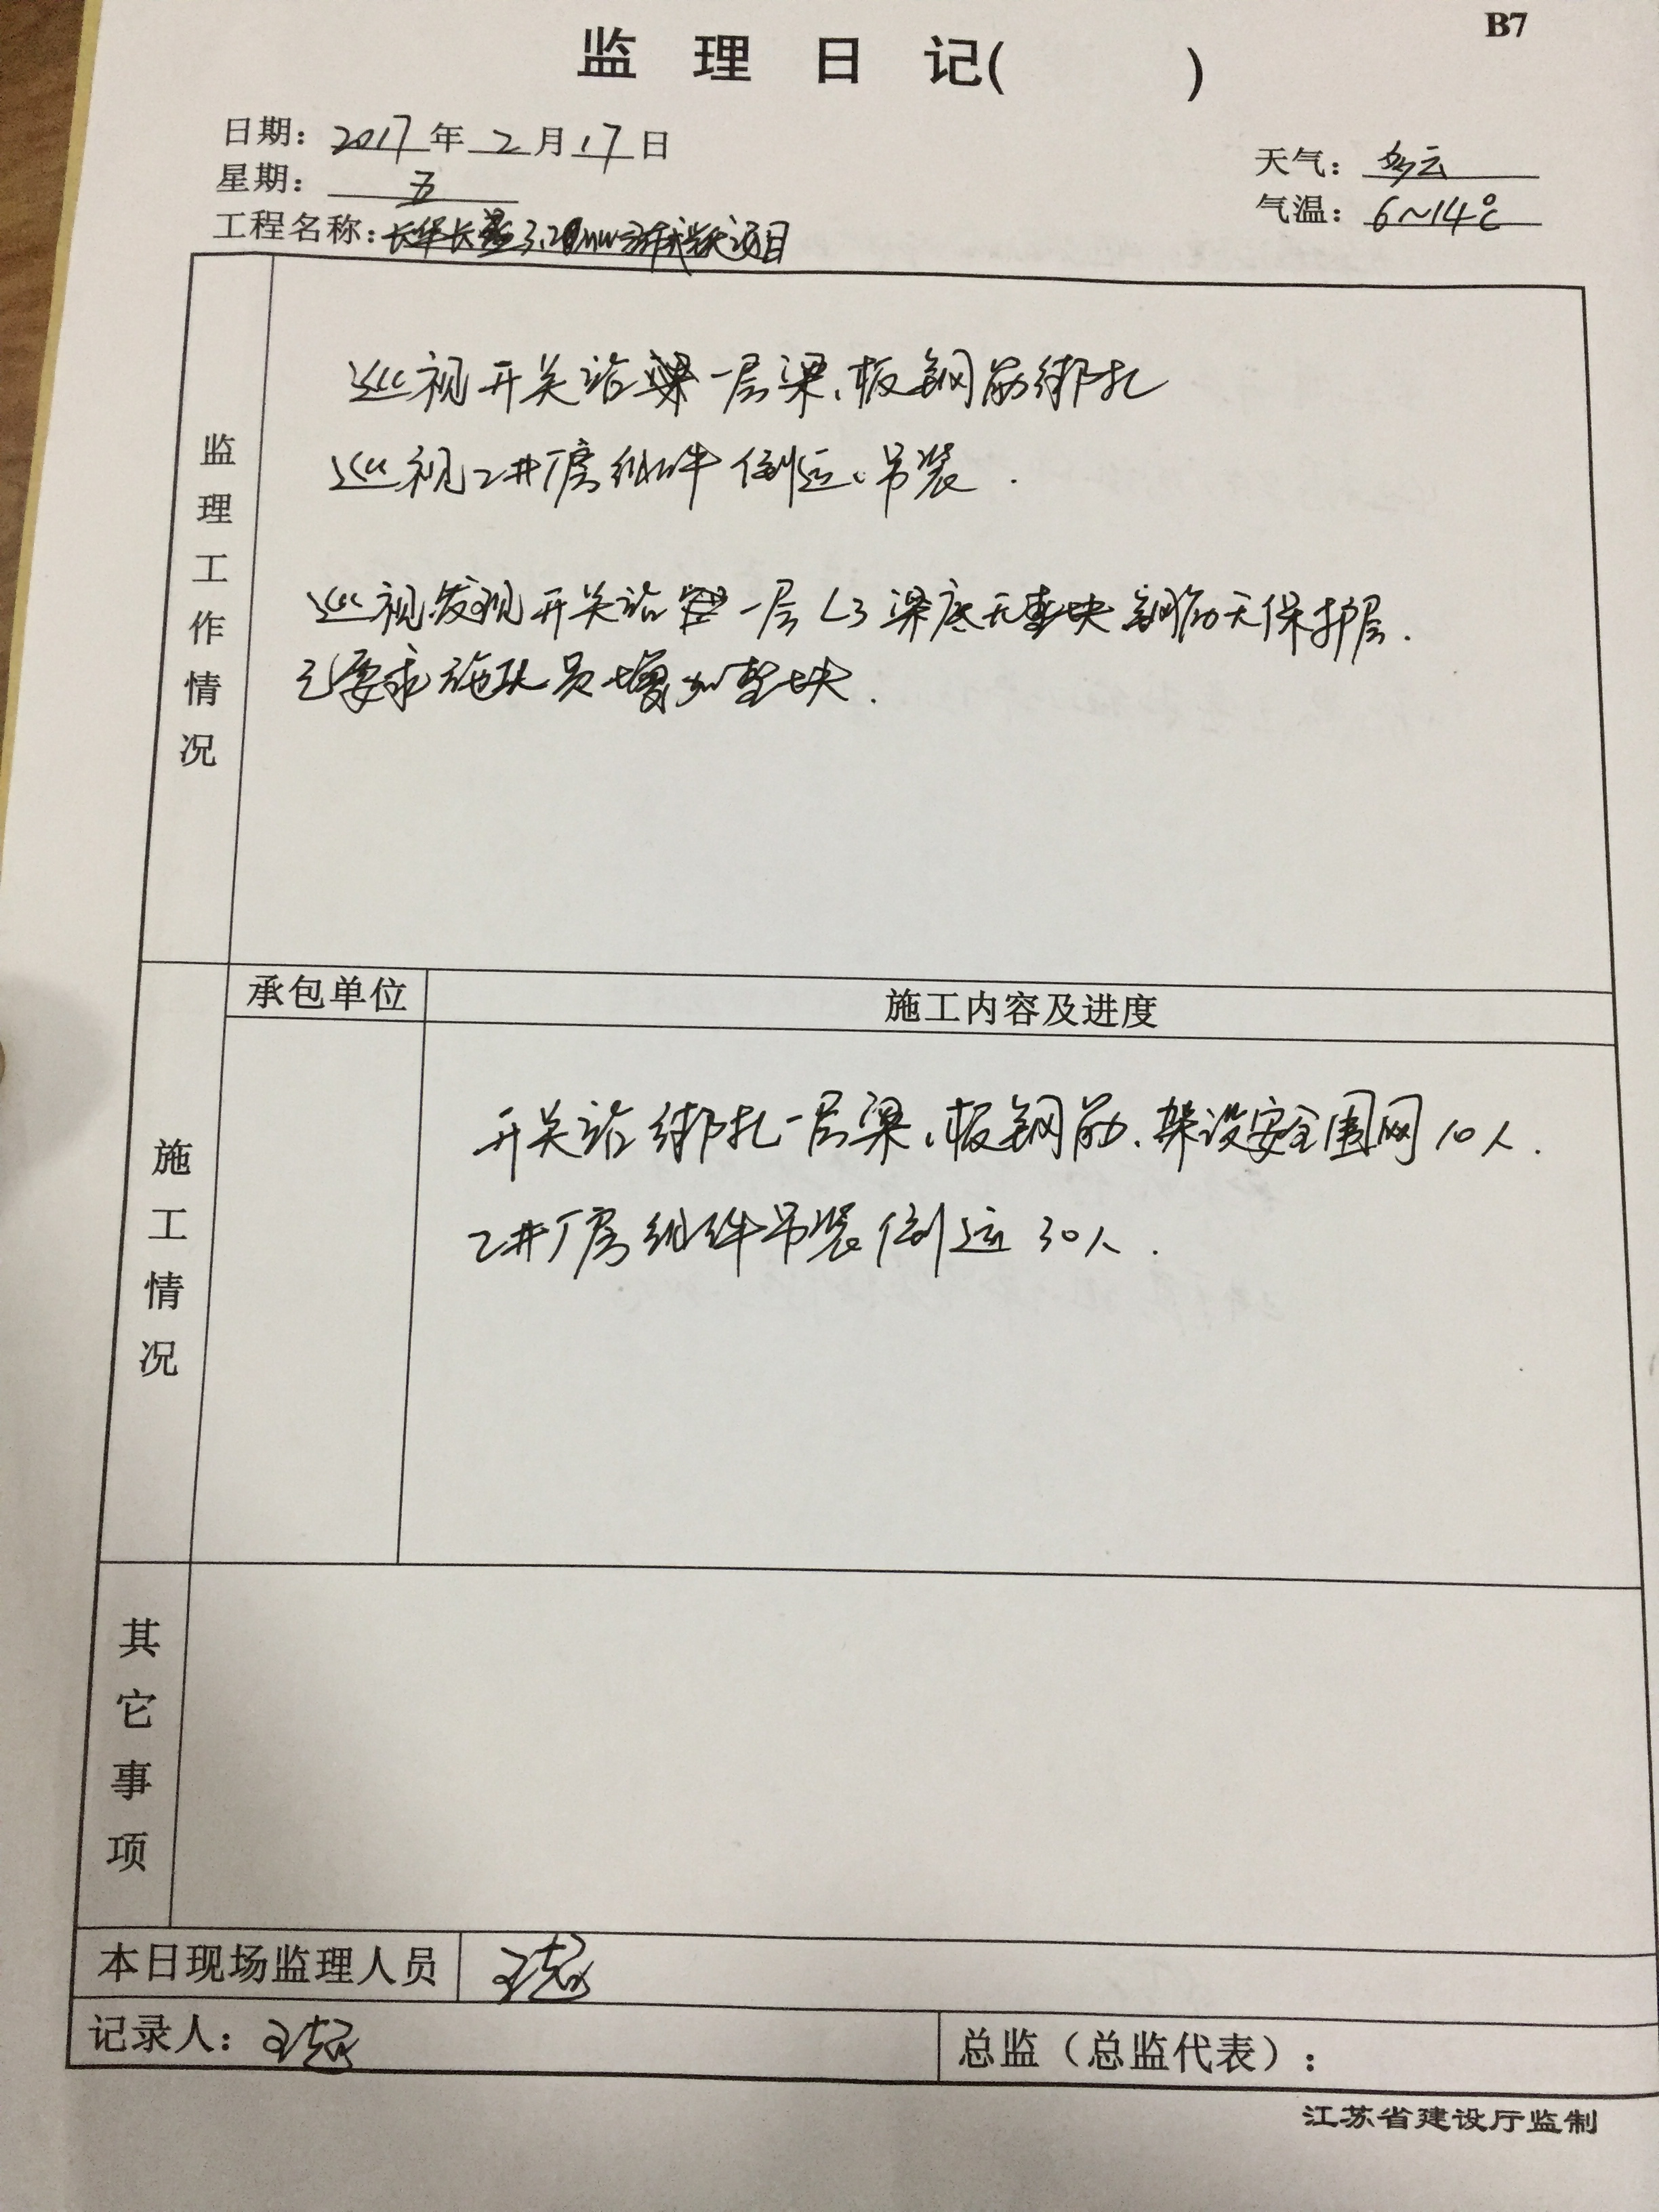 B7
监理日记( )
日期：2017年2月17日
星期：五
天气：多云
气温：6~14℃
工程名称：长华长 3.2 MW 项目
监理工作情况
巡视开关站一层梁、板钢筋绑扎
巡视2#厂房组件倒运、吊装.
巡视发现开关站一层L3梁底无垫块 钢筋无保护层.
已要求施工队员增加垫块.
承包单位
施工内容及进度
施工情况
开关站绑扎一层梁、板钢筋、架设安全围网10人.
2#厂房组件吊装倒运30人.
其它事项
本日现场监理人员
记录人：
总监（总监代表）：
江苏省建设厅监制